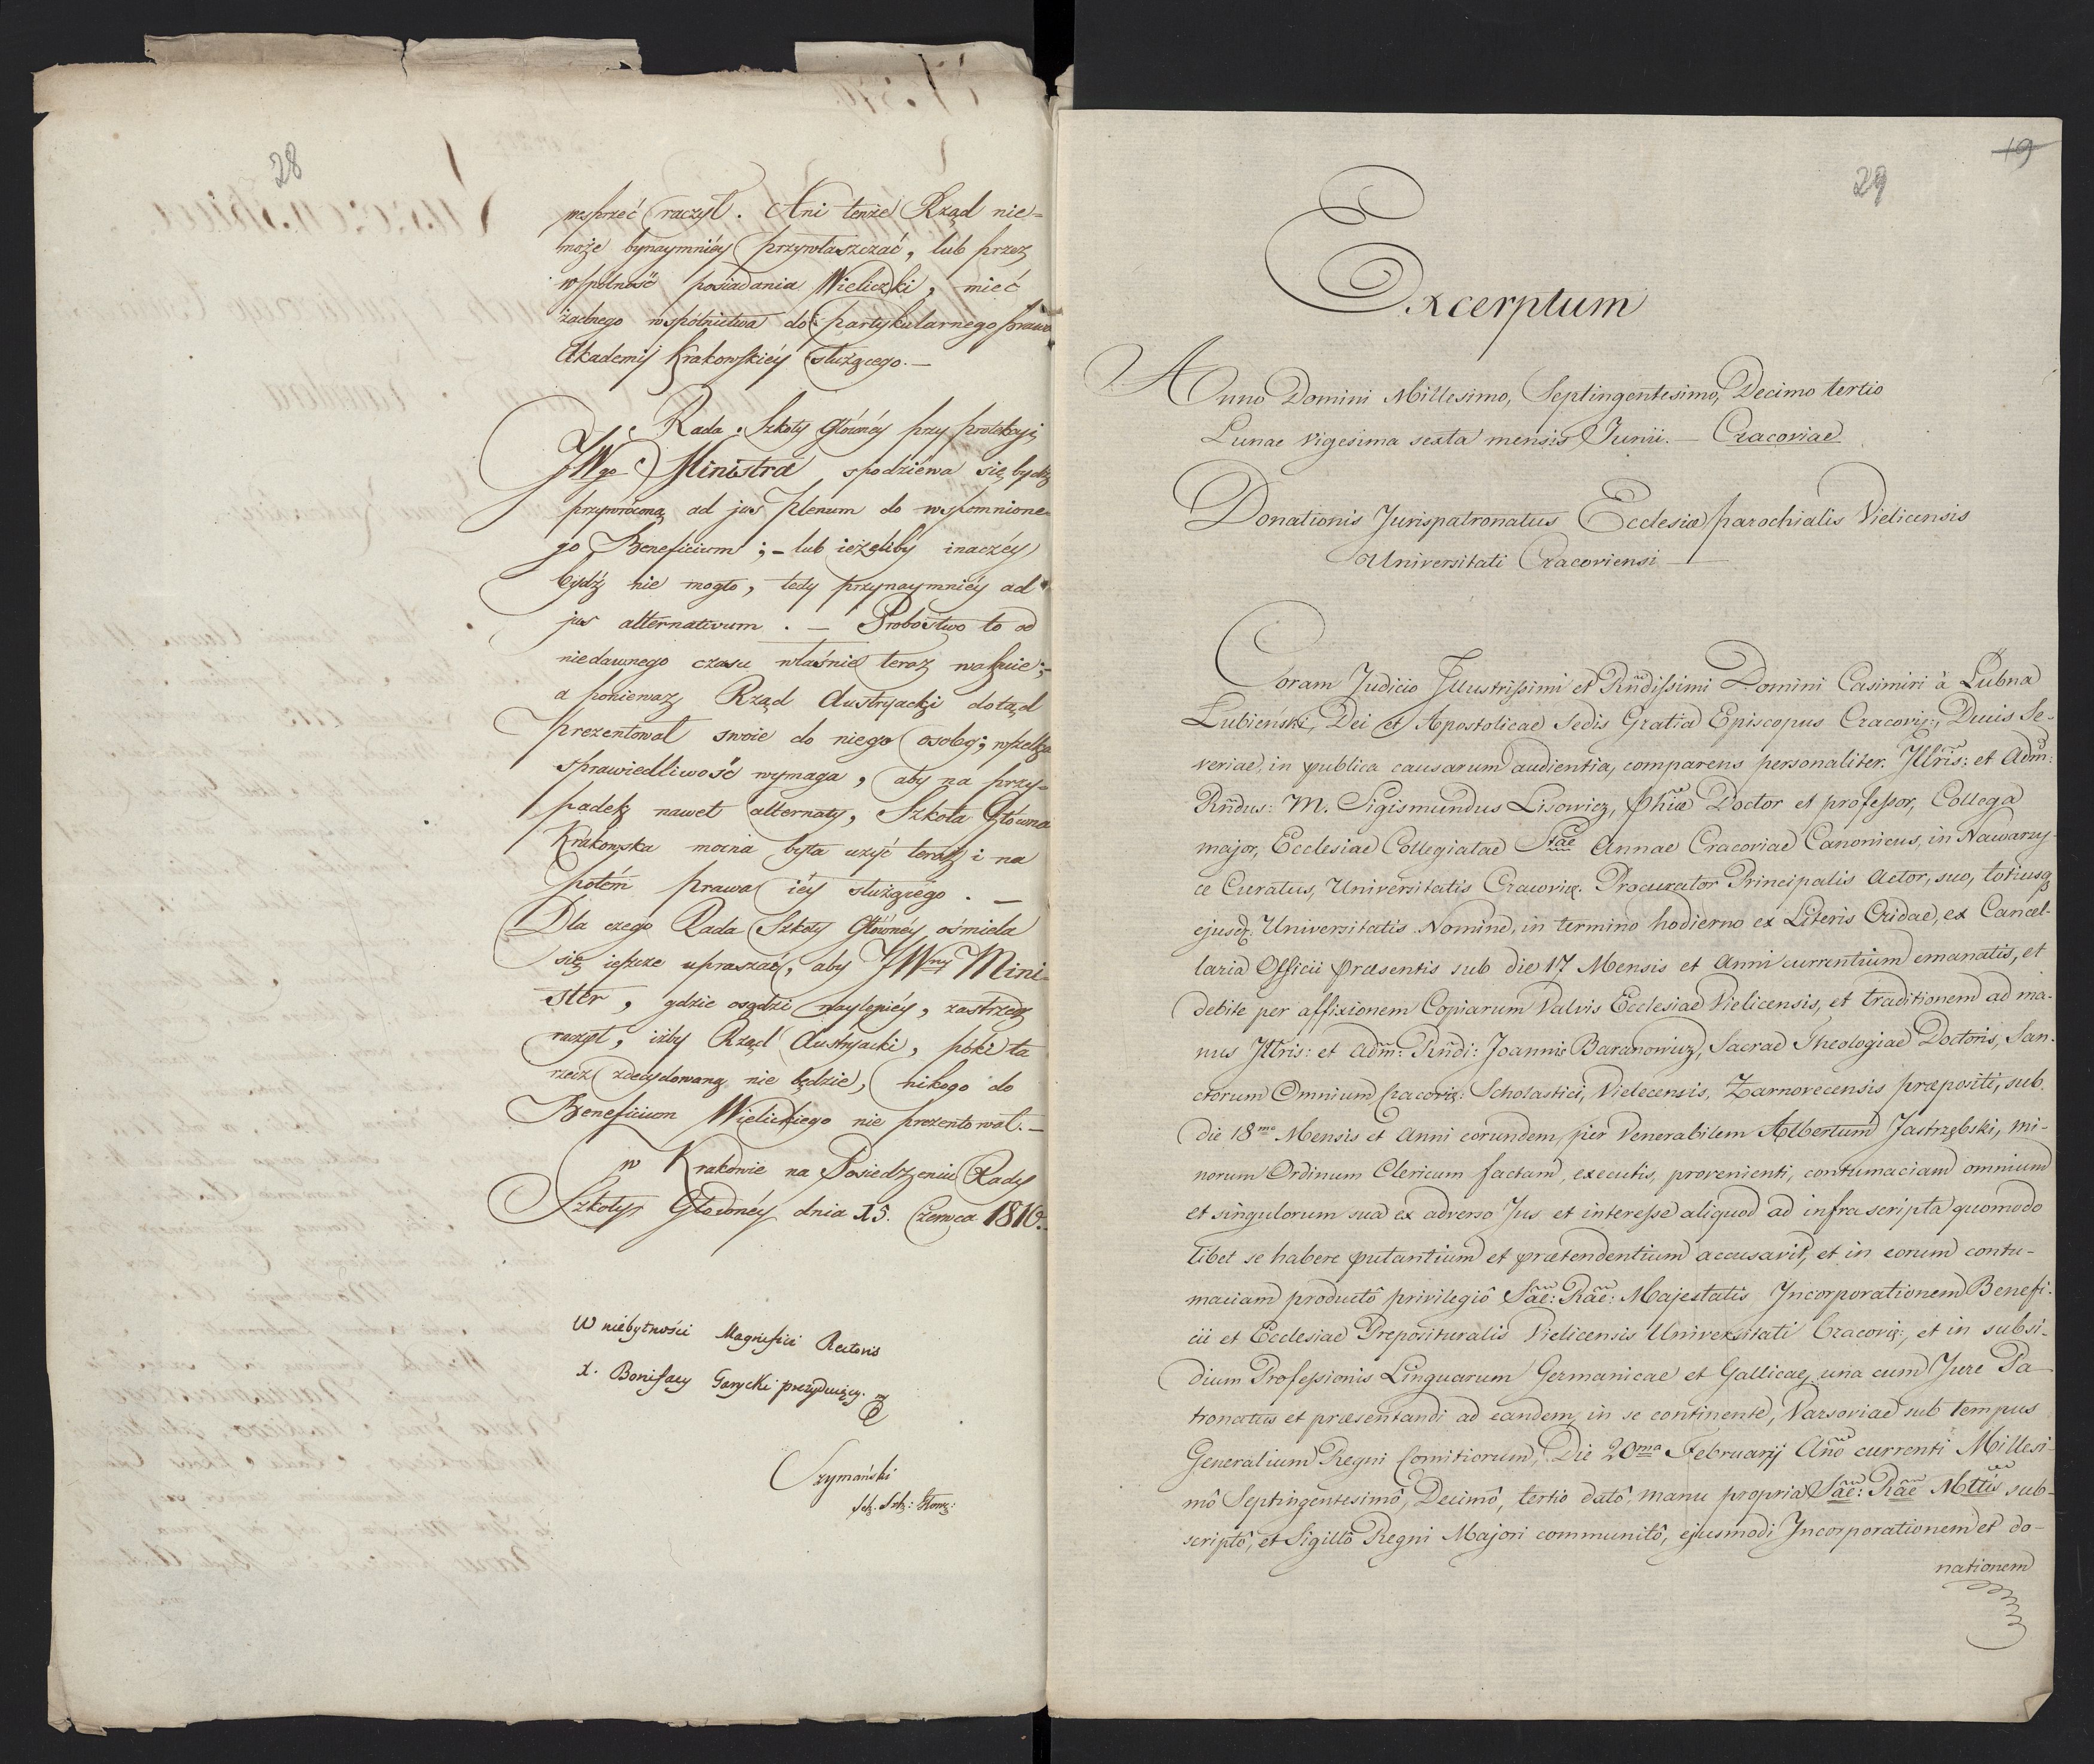 28
wesprzeć raczył. Ani tenże Rząd nie=
może bynaymniéy przywłaszczać, lub przez
wspólność posiadania Wieliczki, mieć
żadnego wspólnictwa do partykularnego prawa
Akademij Krakowskiéy służącego. —
Rada Szkoły Główney przy protekcyi
JWgo Ministra spodziéwa się bydź
przywróconą ad jus plenum do wspomnione=
go Beneficium ; — lub ieżeliby inaczéy
bydź nie mogło, tedy przynaymniéy ad
jus alternativum . — Probostwo to od
niedawnego czasu właśnie teraz wakuie ;
a ponieważ Rząd Austryacki dotąd
prezentował swoie do niego osoby ; wszelka
sprawiedliwość wymaga , aby na przy=
padek nawet alternaty, Szkoła Główna
Krakowska mocna była użyć teraz i na
potém prawa iéy służącego . —
Dla czego Rada Szkoły Głównéy ośmiela
się ieszcze upraszać, aby JWny Mini=
ster , gdzie osądzi naylepiéy , zastrzedz
raczył , iżby Rząd Austryacki , póki ta
rzecz zdecydowaną nie będzie, nikogo do
Beneficium Wielickiego nie prezentował. —
w Krakowie na Posiedzeniu Rady
Szkoły Głównéy dnia 15. Czerwca 1810.
W niebytności Magnifici Rectoris
X. Bonifacy Garycki prezyduiący.
Szymański
Sek. Szk: Głowz:
19
29
Excerptum
Anno Domini Millesimo, Septingentesimo, Decimo tertio
Lunae vigesima sexta mensis Junii. — Cracoviae
Donationis Jurispatronatus Ecclesiæ parochialis Vielicensis
Universitati Cracoviensi —
Coram Judicio Illustrissimi et Rñdissimi Domini Casimiri à Lubna
Lubieński, Dei et Apostolicae Sedis Gratia Episcopus Cracoviæ, Ducis Se-
veriae, in publica causarum audientia, comparens personaliter. Illris: et Adm:
Rñdus: M. Sigismundus Lisowicz, Phiæ Doctor et professor, Collega
major, Ecclesiae Collegiatae Stae Annae Cracoviae Canonicus, in Nawarzy-
ce Curatus, Universitatis Cracoviæ. Procurator Principalis Actor, suo, totiusq
ejusd. Universitatis Nomine, in termino hodierno ex Literis Cridae, ex Cancel-
laria Officii Præsentis sub die 17 Mensis et Anni currentium emanatis, et
debite per affixionem Copiarum Valvis Ecclesiae Vielicensis, et traditionem ad ma-
nus Illris: et Adm: Rñdi: Joannis Baranowicz, Sacrae Theologiae Doctoris, San-
ctorum Omnium Cracoviæ: Scholastici, Vielecensis, Zarnovecensis præpositi, sub
die 18mo Mensis et Anni eorundem, per Venerabilem Albertum Jastrzębski, Mi-
norum Ordinum Clericum factam, executis, provenienti, contumaciam omnium
et singulorum sua ex adverso Jus et interesse aliquod ad infra scripta quomodo
libet se habere putantium et prætendentium accusavit, et in eorum contu-
maciam productô privilegiô Sãe: Rãe: Majestatis Incorporationem Benefi-
cii et Ecclesiae Præposituralis Vielicensis Universitati Cracoviæ:, et in subsi-
dium Professionis Linguarum Germanicae et Gallicae, una cum Jure Pa-
tronatus et præsentandi ad eandem in se continente, Varsoviae sub tempus
Generalium Regni Comitiorum, Die 20ma Februarij Año currenti Millesi-
mô Septingentesimô, Decimô, tertio datô, manu propria Sãe: Rãe Mttis sub-
scriptô, et Sigillô Regni Majori communitô, ejusmodi Incorporationem et do-
nationem